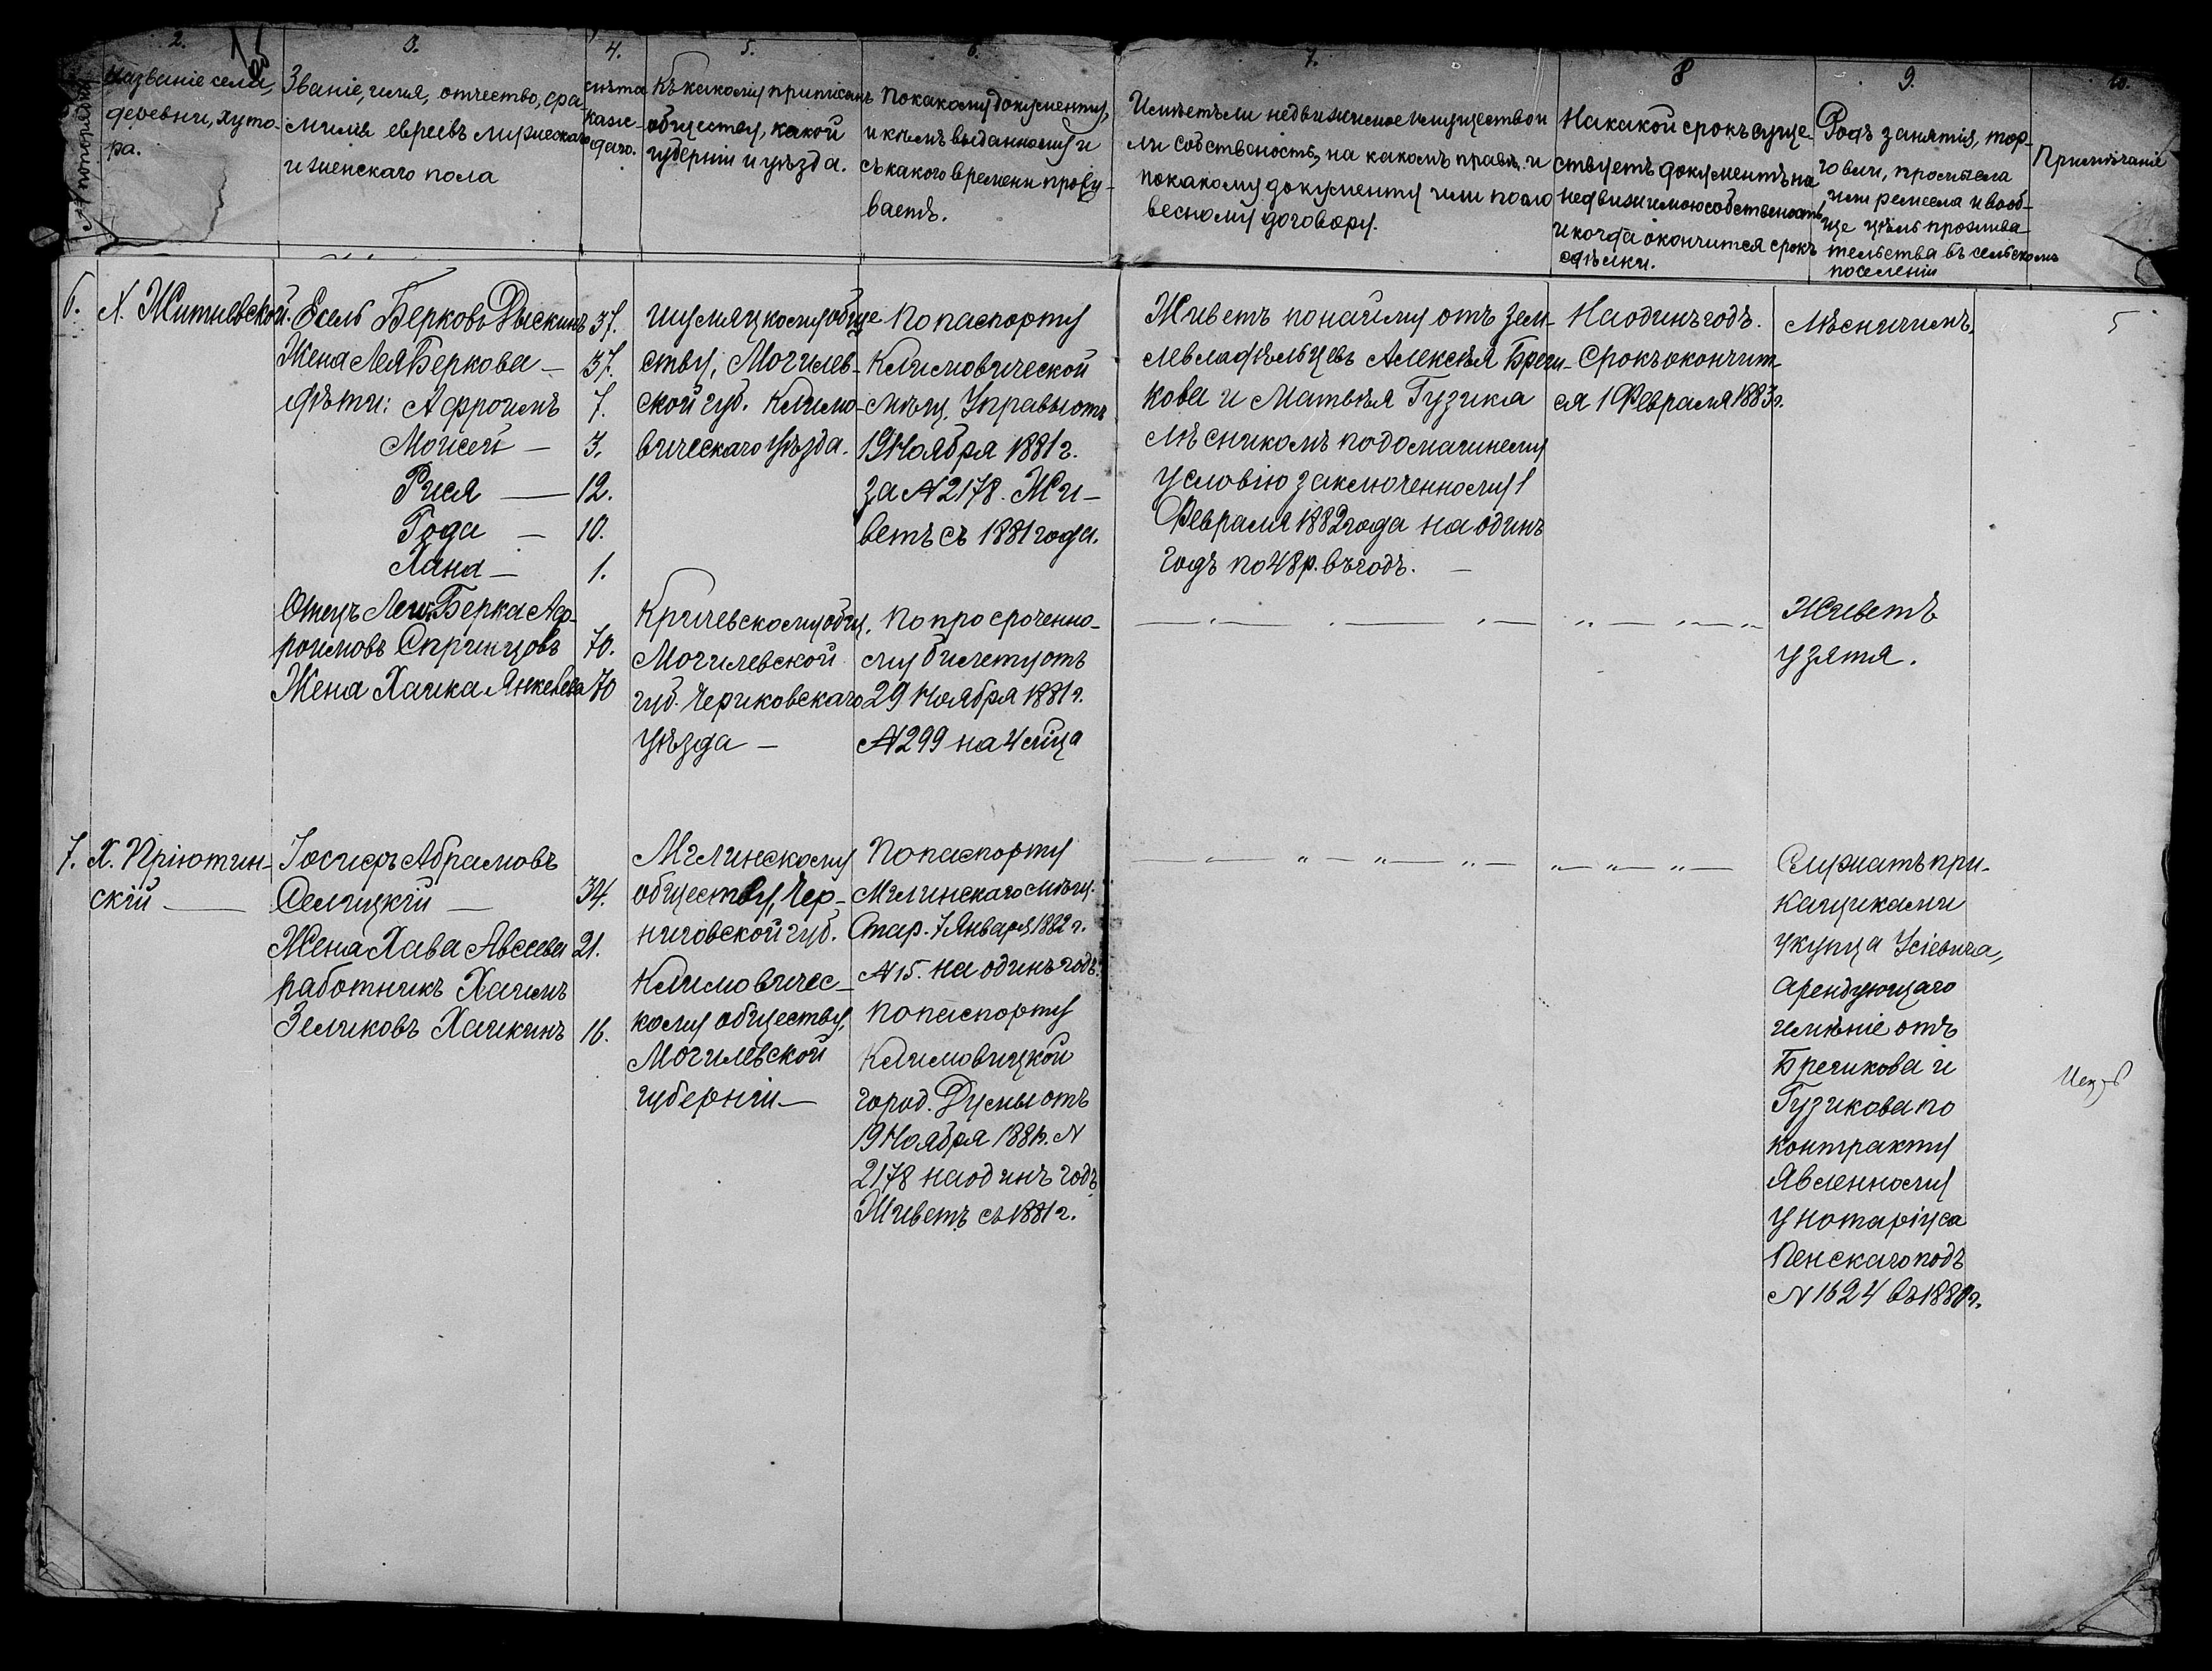 2.
Названіе села,
деревни, хуто-
ра.
№ по порядку
3.
Званіе, имя, отчество, фа-
милія евреевъ мужескаго
и женскаго пола
4.
лѣта
кажс-
даго.
5.
Къ какому приписанъ
обществу, какой
губерніи и уѣзда.
6.
По какому документу,
и кѣмъ выданному и
съ какого времени прожу-
ваетъ.
7.
Имѣетъ ли недвижимое имущество и
ли собственость, на какомъ правѣ и
по какому документу или по сло
весному договору.
8
На какой срокъ суще-
ствуетъ документъ на
недвижимою собственость
и когда окончится срокъ
сдѣлки.
9.
Родъ занятія, тор-
говли, промысла
или ремесла и вооб-
ще цѣль прожива-
тельства въ сельскомъ
поселеніи
10.
Примѣчаніе
6.
Х. Житневской.
Есель Берковъ Дыскинъ 37.
Жена Лея Беркова — 37.
дѣти: Афроимъ 7.
Моисей — 3.
Рися — 12.
Года — 10.
Хана — 1.
Шумяцкому обще
ству, Могилев-
ской губ. Климо-
вическаго уѣзда.
По паспорту
Климовической
мѣщ. Управы отъ
19 Ноября 1881 г.
за № 2178. Жи-
ветъ съ 1881 года.
Живетъ по найму отъ зем-
левладѣльцевъ Алексѣя Бреги-
кова и Матвѣя Гузика
лѣсникомъ по домашнему
условію заключенному 1
Февраля 1882 года на одинъ
годъ по 48 р. въ годъ. —
На одинъ годъ.
Срокъ окончит-
ся 1 Февраля 1883 г.
Лѣсничимъ.
5
Отецъ Леи Берка Аф-
роимовъ Спринцовъ 70.
Жена Хайка Янкелева 70
Кричевскому общ.
Могилевской
губ. Чериковскаго
уѣзда —
По просроченно-
му билету отъ
29 Ноября 1881 г.
№ 299 на 4 мѣца
Живетъ
у зятя.
7.
Х. Пріютин-
скій —
Іосифъ Абрамовъ
Селицкій — 34.
Жена Хава Авсеева 21.
работникъ Хаимъ
Зеликовъ Хайкинъ 16.
Мглинскому
обществу, Чер-
ниговской губ.
Климовичес-
кому обществу,
Могилевской
губерніи —
По паспорту
Мглинскаго мѣщ.
Стар. 7 Января 1882 г.
№ 15. на одинъ годъ.
По паспорту
Климовицкой
город. Думы отъ
19 Ноября 1881 г. №
2178 на одинъ годъ
Живетъ съ 1881 г.
Служатъ при-
кащиками
у купца Усіевича,
арендующаго
имѣніе отъ
Брегикова и
Гузикова по
контракту
явленному
у нотаріуса
Пенскаго подъ
№ 1624 въ 1880 г.